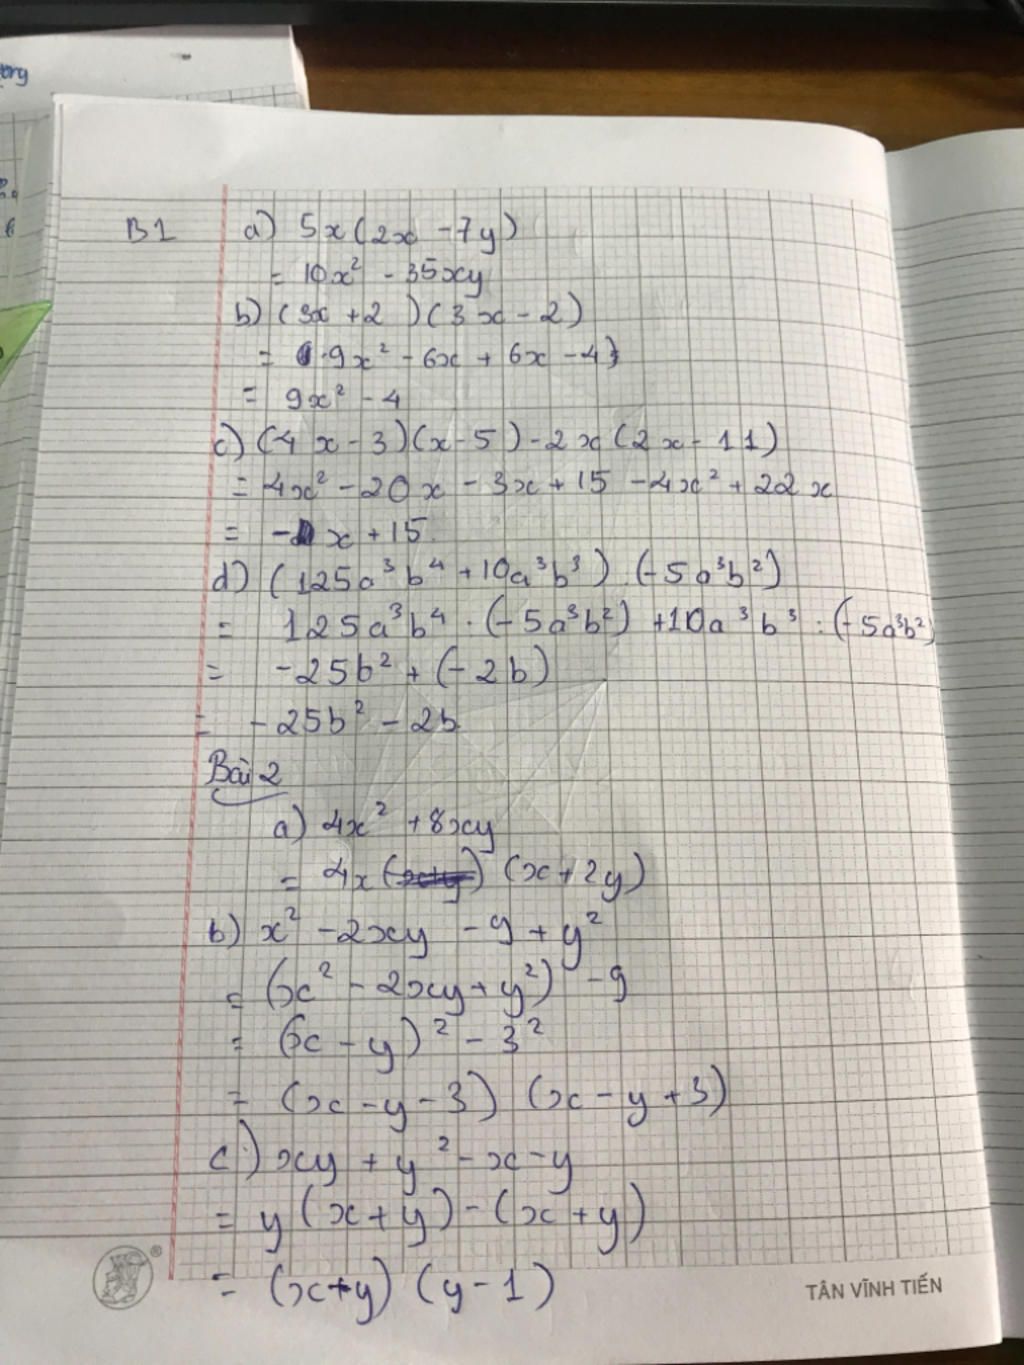 B1 a) 5x(2x - 7y)
= 10x² - 35xy
b) (3x + 2)(3x - 2)
= 9x² - 6x + 6x - 4
= 9x² - 4
c) (4x - 3)(x - 5) - 2x(2x - 11)
= 4x² - 20x - 3x + 15 - 4x² + 22x
= -x + 15
d) (125a³b⁴ + 10a³b³) . (-5a³b²)
= 125a³b⁴ . (-5a³b²) + 10a³b³ : (-5a³b²)
= -25b² + (-2b)
= -25b² - 2b
Bài 2
a) 4x² + 8xy
= 4x (x + 2y)
b) x² - 2xy - 9 + y²
= (x² - 2xy + y²) - 9
= (x - y)² - 3²
= (x - y - 3) (x - y + 3)
c) xy + y² - x - y
= y (x + y) - (x + y)
= (x + y) (y - 1)
TÂN VĨNH TIẾN